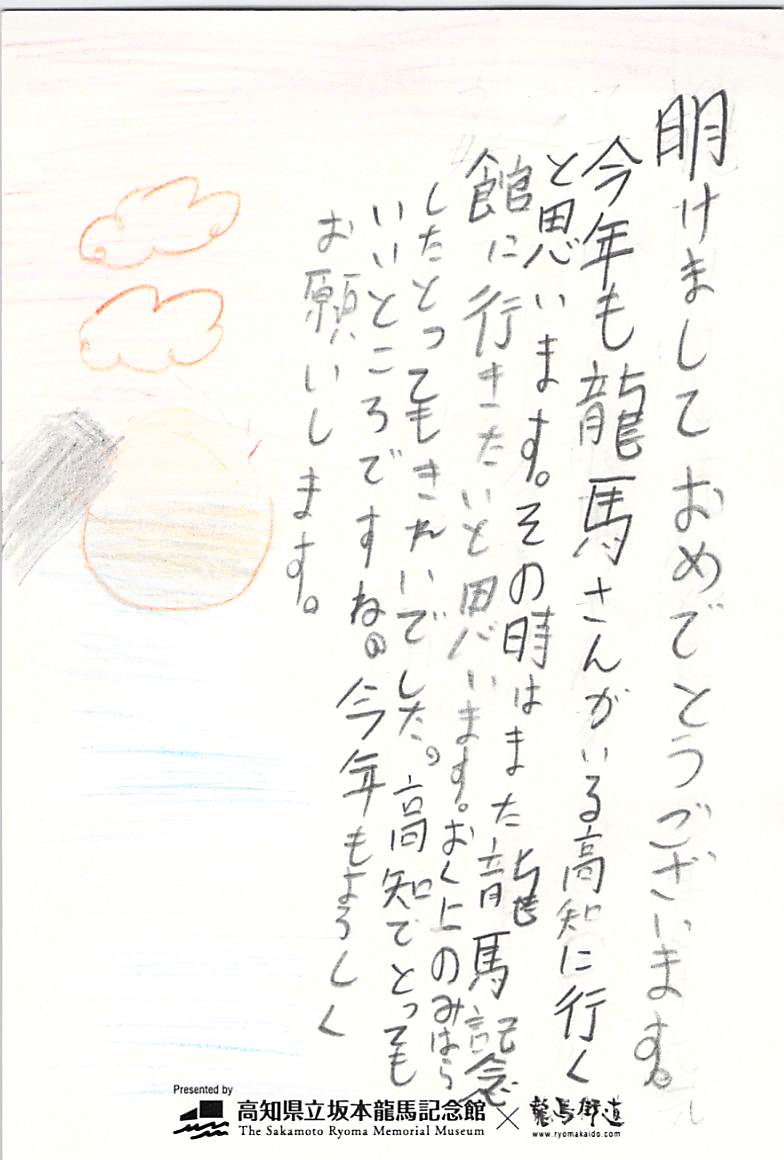 明けましておめでとうございます。
今年も龍馬さんがいる高知に行く
と思います。その時はまた龍馬記念
館に行きたいと思います。おく上のみはら
したとってもきれいでした。高知でとっても
いいところですね。今年もよろしく
お願いします。
Presented by
高知県立坂本龍馬記念館
The Sakamoto Ryoma Memorial Museum
×
龍馬街道
www.ryomakaido.com